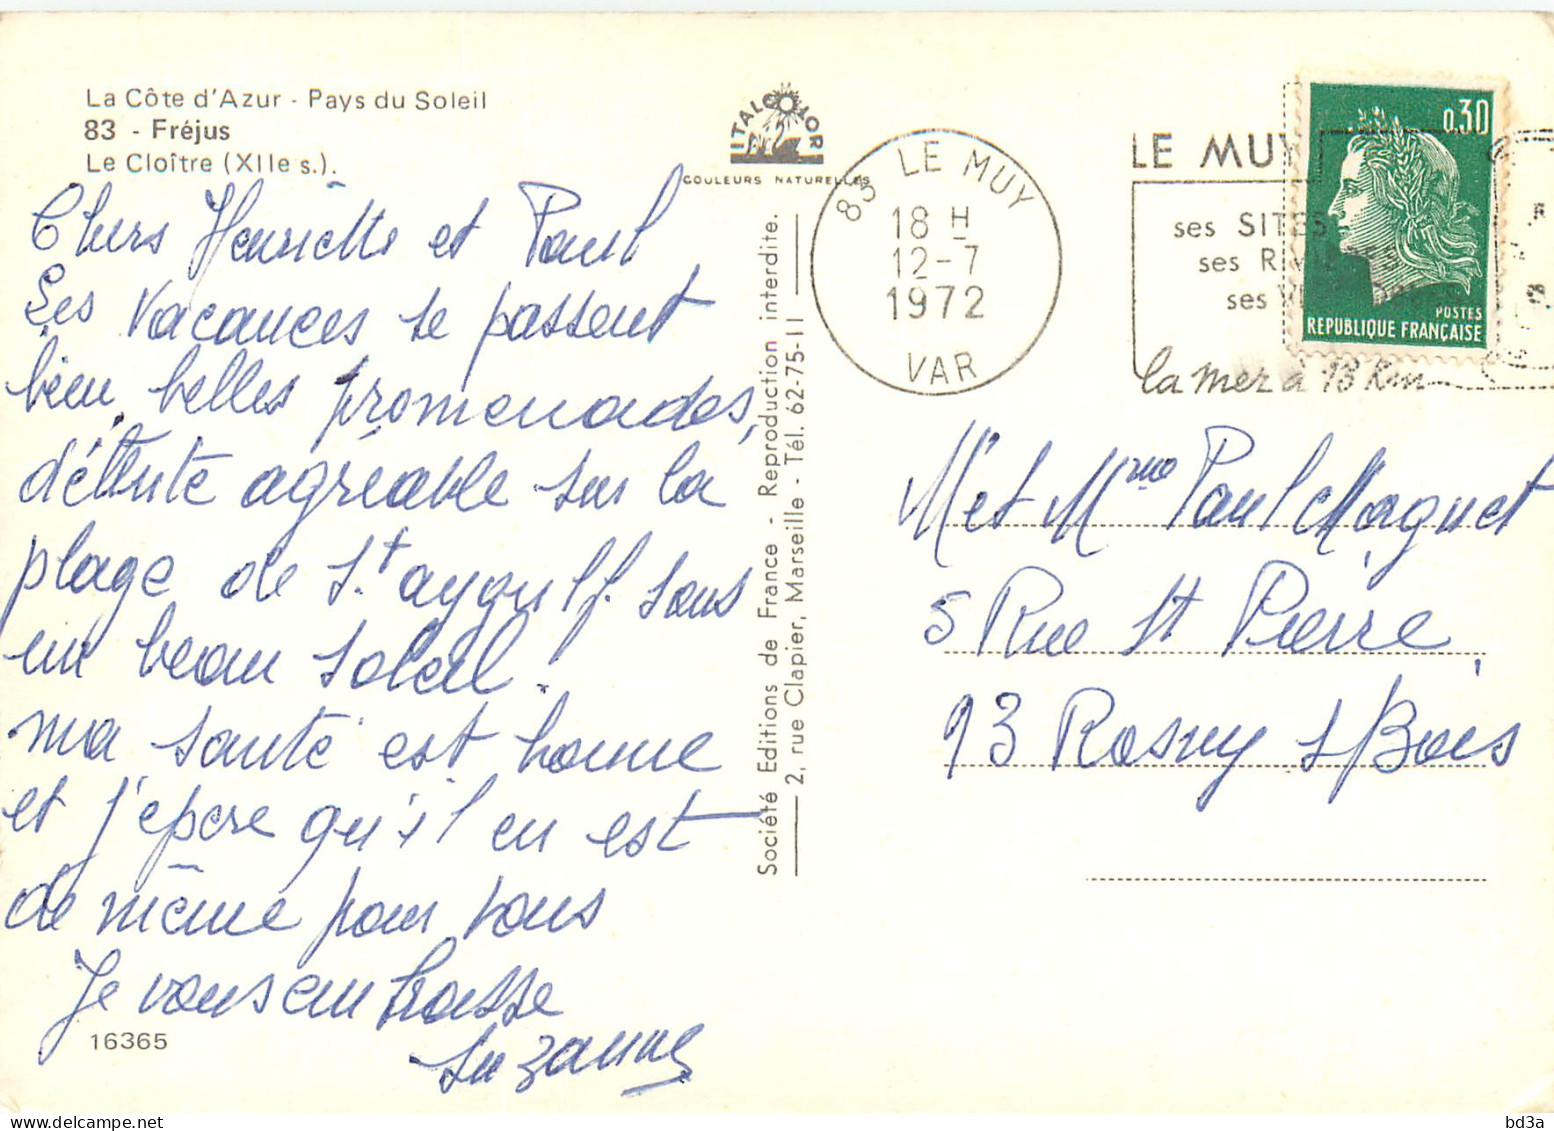 La Côte d'Azur - Pays du Soleil
83 - Fréjus
Le Cloître (XIIe s.).
Chers Henriette et Paul
Les vacances se passent
bien, belles promenades,
détente agréable sur la
plage de St aygulf. sous
un beau soleil.
ma santé est bonne
et j'epère qu'il en est
de même pour vous
Je vous embrasse
Suzanne
16365
ITALCOLOR
COULEURS NATURELLES
Société Editions de France - Reproduction interdite.
2, rue Clapier, Marseille - Tél. 62-75-11
83 LE MUY
18 H
12-7
1972
VAR
LE MUY
ses SITES
ses
ses
la mer à 13 Km
0,30
POSTES
REPUBLIQUE FRANÇAISE
M et Mme Paul Magnet
5 Rue St Pierre,
93 Rosny s/Bois
bd3a